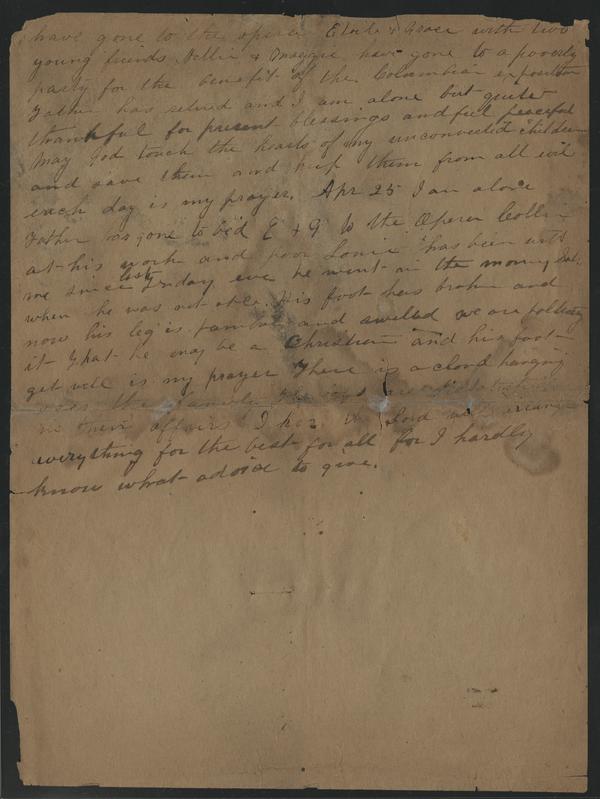 have gone to the opera Eloise & Grace with two
young friends Nellie & Maggie have gone to a poverty
party for the benefit of the Columbian exposition
Father has retired and I am alone but quite
thankful for present blessings and feel peaceful
May God touch the hearts of my unconverted children
and save them and keep them from all evil
each day is my prayer. Apr 25 I am alone
Father has gone to bed E & G to the Opera
at his work and poor has been with
me since last day eve he went on the
when he was not able. His foot has broken and
now his leg is and swelled we are
it that he may be a Christian and his foot
get well is my prayer There is a cloud hanging
over the family
in their affairs I the Lord will
everything for the best for all for I hardly
know what advice to give.